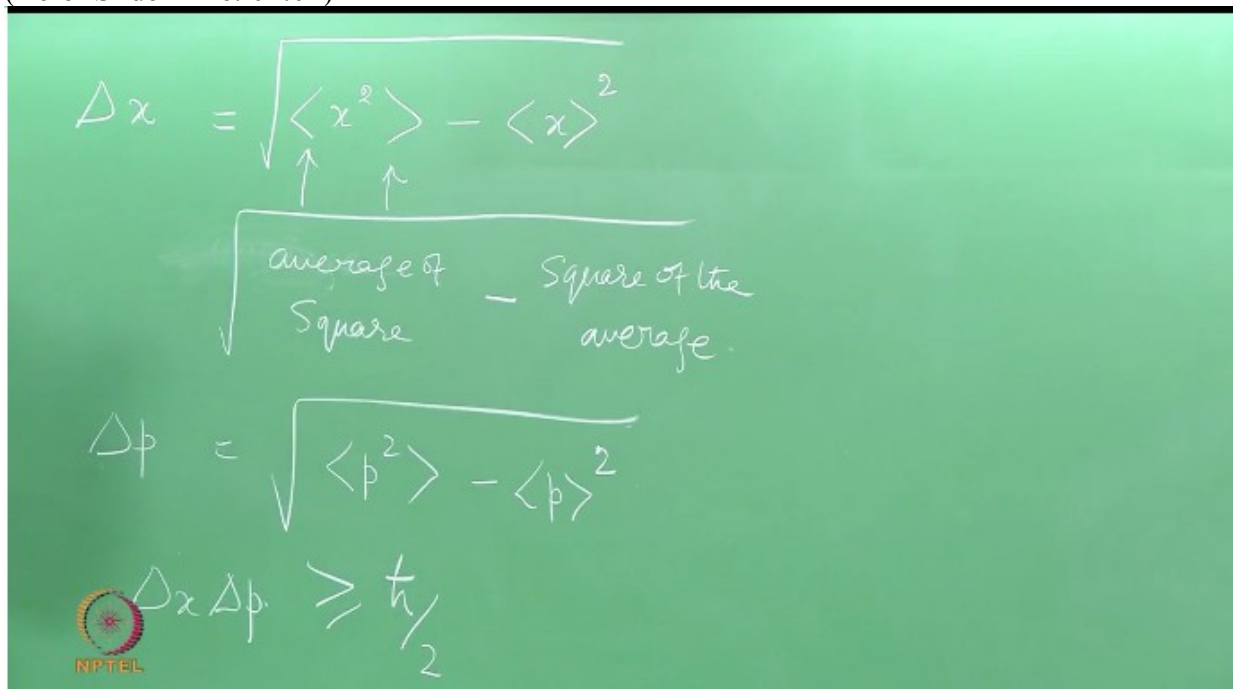 Δx = √(⟨x²⟩ − ⟨x⟩²)
↑ ↑
√(average of Square − Square of the average.)
Δp = √(⟨p²⟩ − ⟨p⟩²)
Δx Δp. ⩾ ħ/2
NPTEL